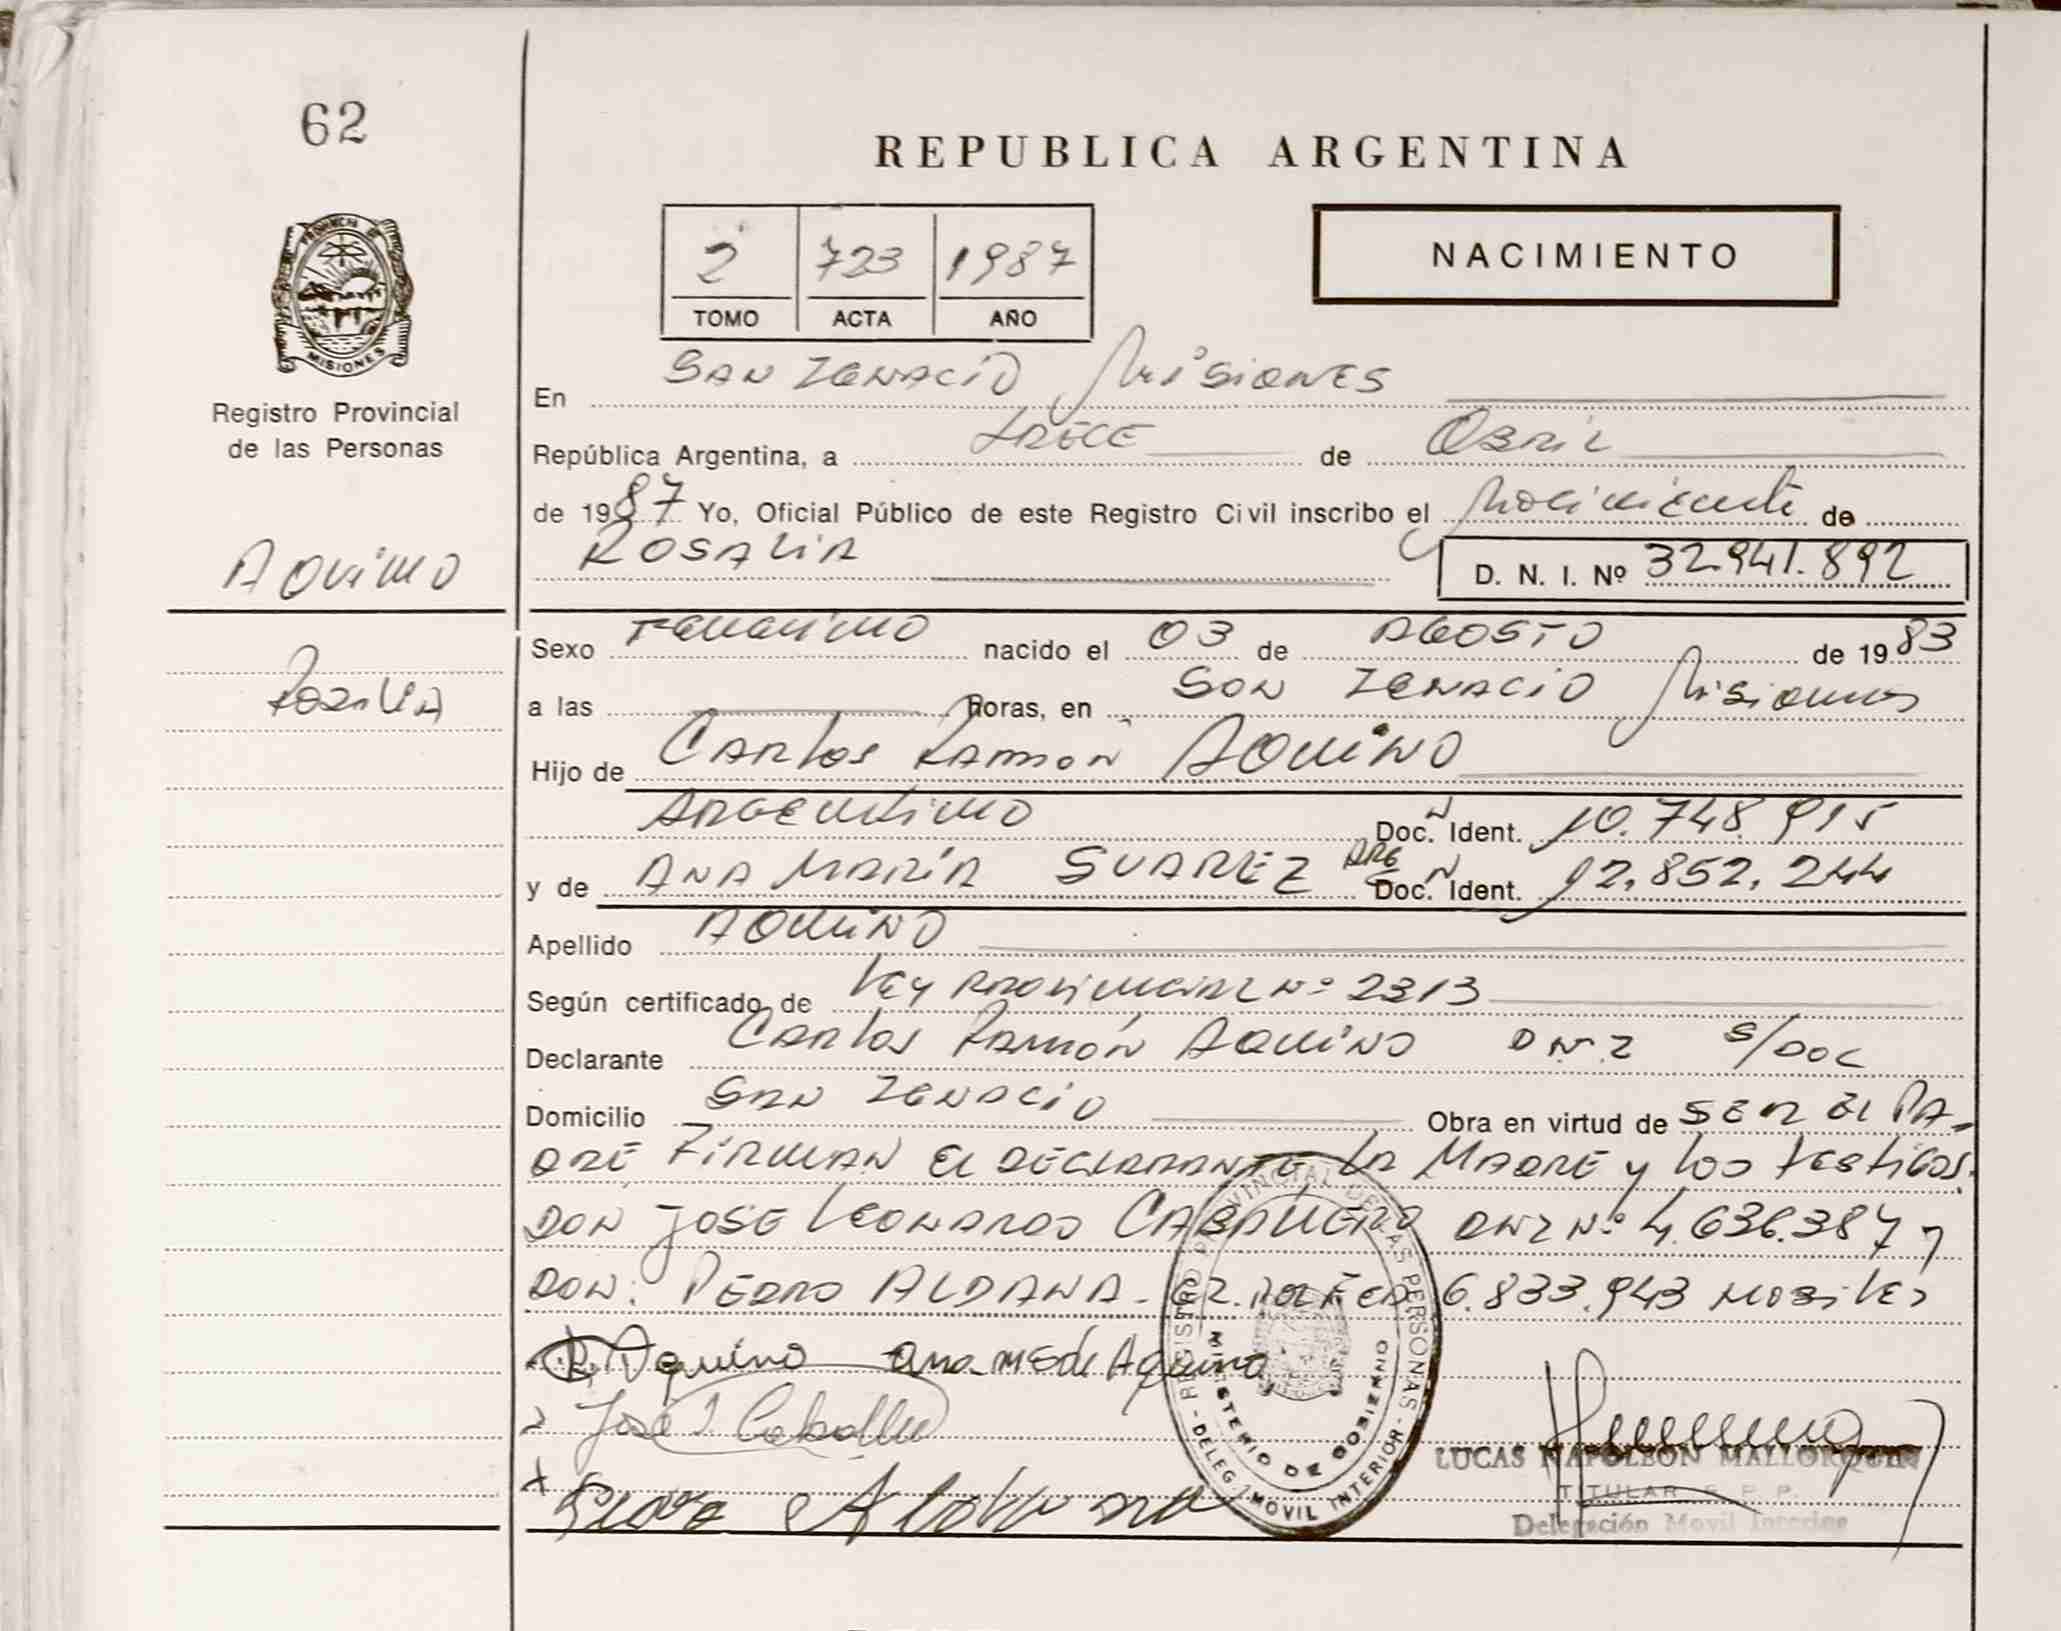 62
REPUBLICA ARGENTINA
NACIMIENTO
2 723 1987
TOMO ACTA AÑO
PROVINCIA DE MISIONES
Registro Provincial
de las Personas
AQUINO
ROSALIA
En SAN IGNACIO MISIONES
República Argentina, a TRECE de ABRIL
de 1987 Yo, Oficial Público de este Registro Civil inscribo el Nacimiento de
ROSALIA D. N. I. Nº 32.941.892
Sexo FEMENINO nacido el 03 de AGOSTO de 1983
a las horas, en SAN IGNACIO MISIONES
Hijo de CARLOS RAMON AQUINO
ARGENTINO Doc. N Ident. 10.748.915
y de ANA MARÍA SUAREZ ARG Doc. N Ident. 12.852.244
Apellido AQUINO
Según certificado de LEY PROVINCIAL Nº 2313
Declarante CARLOS RAMÓN AQUINO DNI S/DOC
Domicilio SAN IGNACIO Obra en virtud de SER EL PA-
DRE FIRMAN EL DECLARANTE LA MADRE y LOS TESTIGOS.
DON JOSE LEONARDO CABALLERO DNI Nº 4.636.387 y
DON: PEDRO ALDANA - CI. POL FED 6.833.943 MOBILES
Aquino Ana M de Aquino
José L Caballero
Aldana
REGISTRO PROVINCIAL DE LAS PERSONAS - DELEG. MOVIL INTERIOR -
MINISTERIO DE GOBIERNO
LUCAS NAPOLEON MALLORQUIN
TITULAR R. P. P.
Delegación Movil Interior